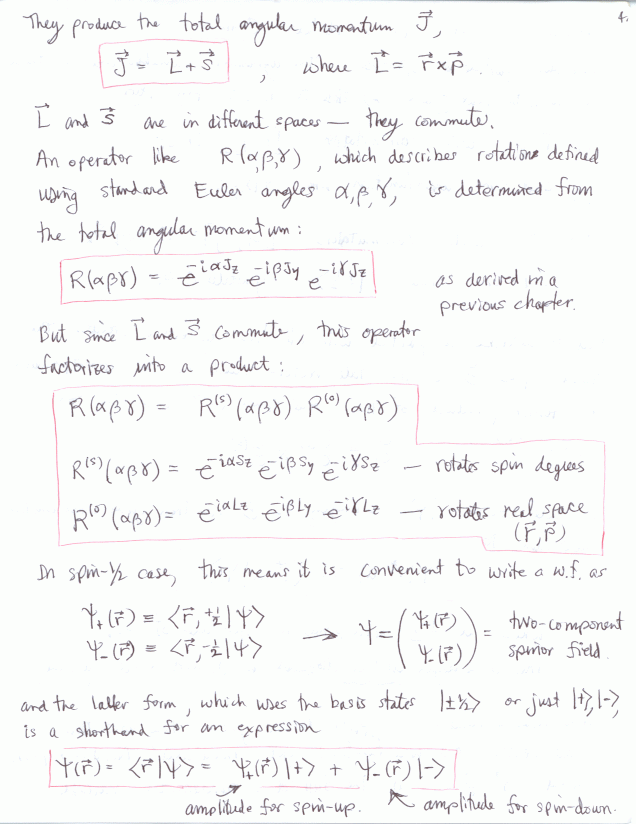 4.
They produce the total angular momentum J⃗,
J⃗ = L⃗ + S⃗ , where L⃗ = r⃗ × p⃗.
L⃗ and S⃗ are in different spaces — they commute.
An operator like R(α,β,γ), which describes rotations defined
using standard Euler angles α,β,γ, is determined from
the total angular momentum:
R(αβγ) = e^{-iαJz} e^{-iβJy} e^{-iγJz} as derived in a
previous chapter.
But since L⃗ and S⃗ commute, this operator
factorizes into a product:
R(αβγ) = R^{(s)}(αβγ) R^{(o)}(αβγ)
R^{(s)}(αβγ) = e^{-iαSz} e^{-iβSy} e^{-iγSz} — rotates spin degrees
R^{(o)}(αβγ) = e^{-iαLz} e^{-iβLy} e^{-iγLz} — rotates real space
(r⃗,p⃗)
In spin-1/2 case, this means it is convenient to write a w.f. as
Ψ₊(r⃗) ≡ ⟨r⃗,+½|Ψ⟩
Ψ₋(r⃗) ≡ ⟨r⃗,-½|Ψ⟩ → Ψ = (Ψ₊(r⃗) Ψ₋(r⃗)) = two-component
spinor field.
and the latter form, which uses the basis states |±½⟩ or just |+⟩,|-⟩,
is a shorthand for an expression
Ψ(r⃗) = ⟨r⃗|Ψ⟩ = Ψ₊(r⃗)|+⟩ + Ψ₋(r⃗)|-⟩
amplitude for spin-up. amplitude for spin-down.